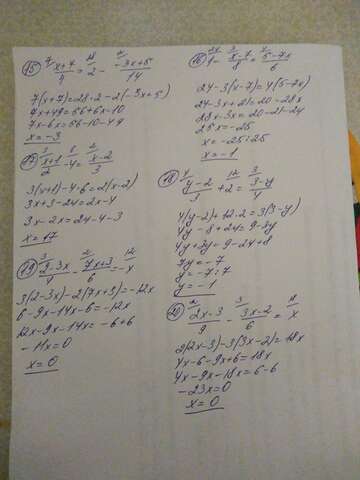 15) x+7/4 = 2 - -3x+5/14
7(x+7)=28·2-2(-3x+5)
7x+49=56+6x-10
7x-6x=56-10-49
x=-3
17) x+1/2 - 4 = x-2/3
3(x+1)-4·6=2(x-2)
3x+3-24=2x-4
3x-2x=24-4-3
x=17
19) 2-3x/4 - 7x+3/6 = -x
3(2-3x)-2(7x+3)=-12x
6-9x-14x-6=-12x
12x-9x-14x=-6+6
-11x=0
x=0
16) 1 - x-7/8 = 5-7x/6
24-3(x-7)=4(5-7x)
24-3x+21=20-28x
28x-3x=20-21-24
25x=-25
x=-25:25
x=-1
18) y-2/3 + 2 = 3-y/4
4(y-2)+12·2=3(3-y)
4y-8+24=9-3y
4y+3y=9-24+8
7y=-7
y=-7:7
y=-1
20) 2x-3/9 - 3x-2/6 = x
2(2x-3)-3(3x-2)=18x
4x-6-9x+6=18x
4x-9x-18x=6-6
-23x=0
x=0